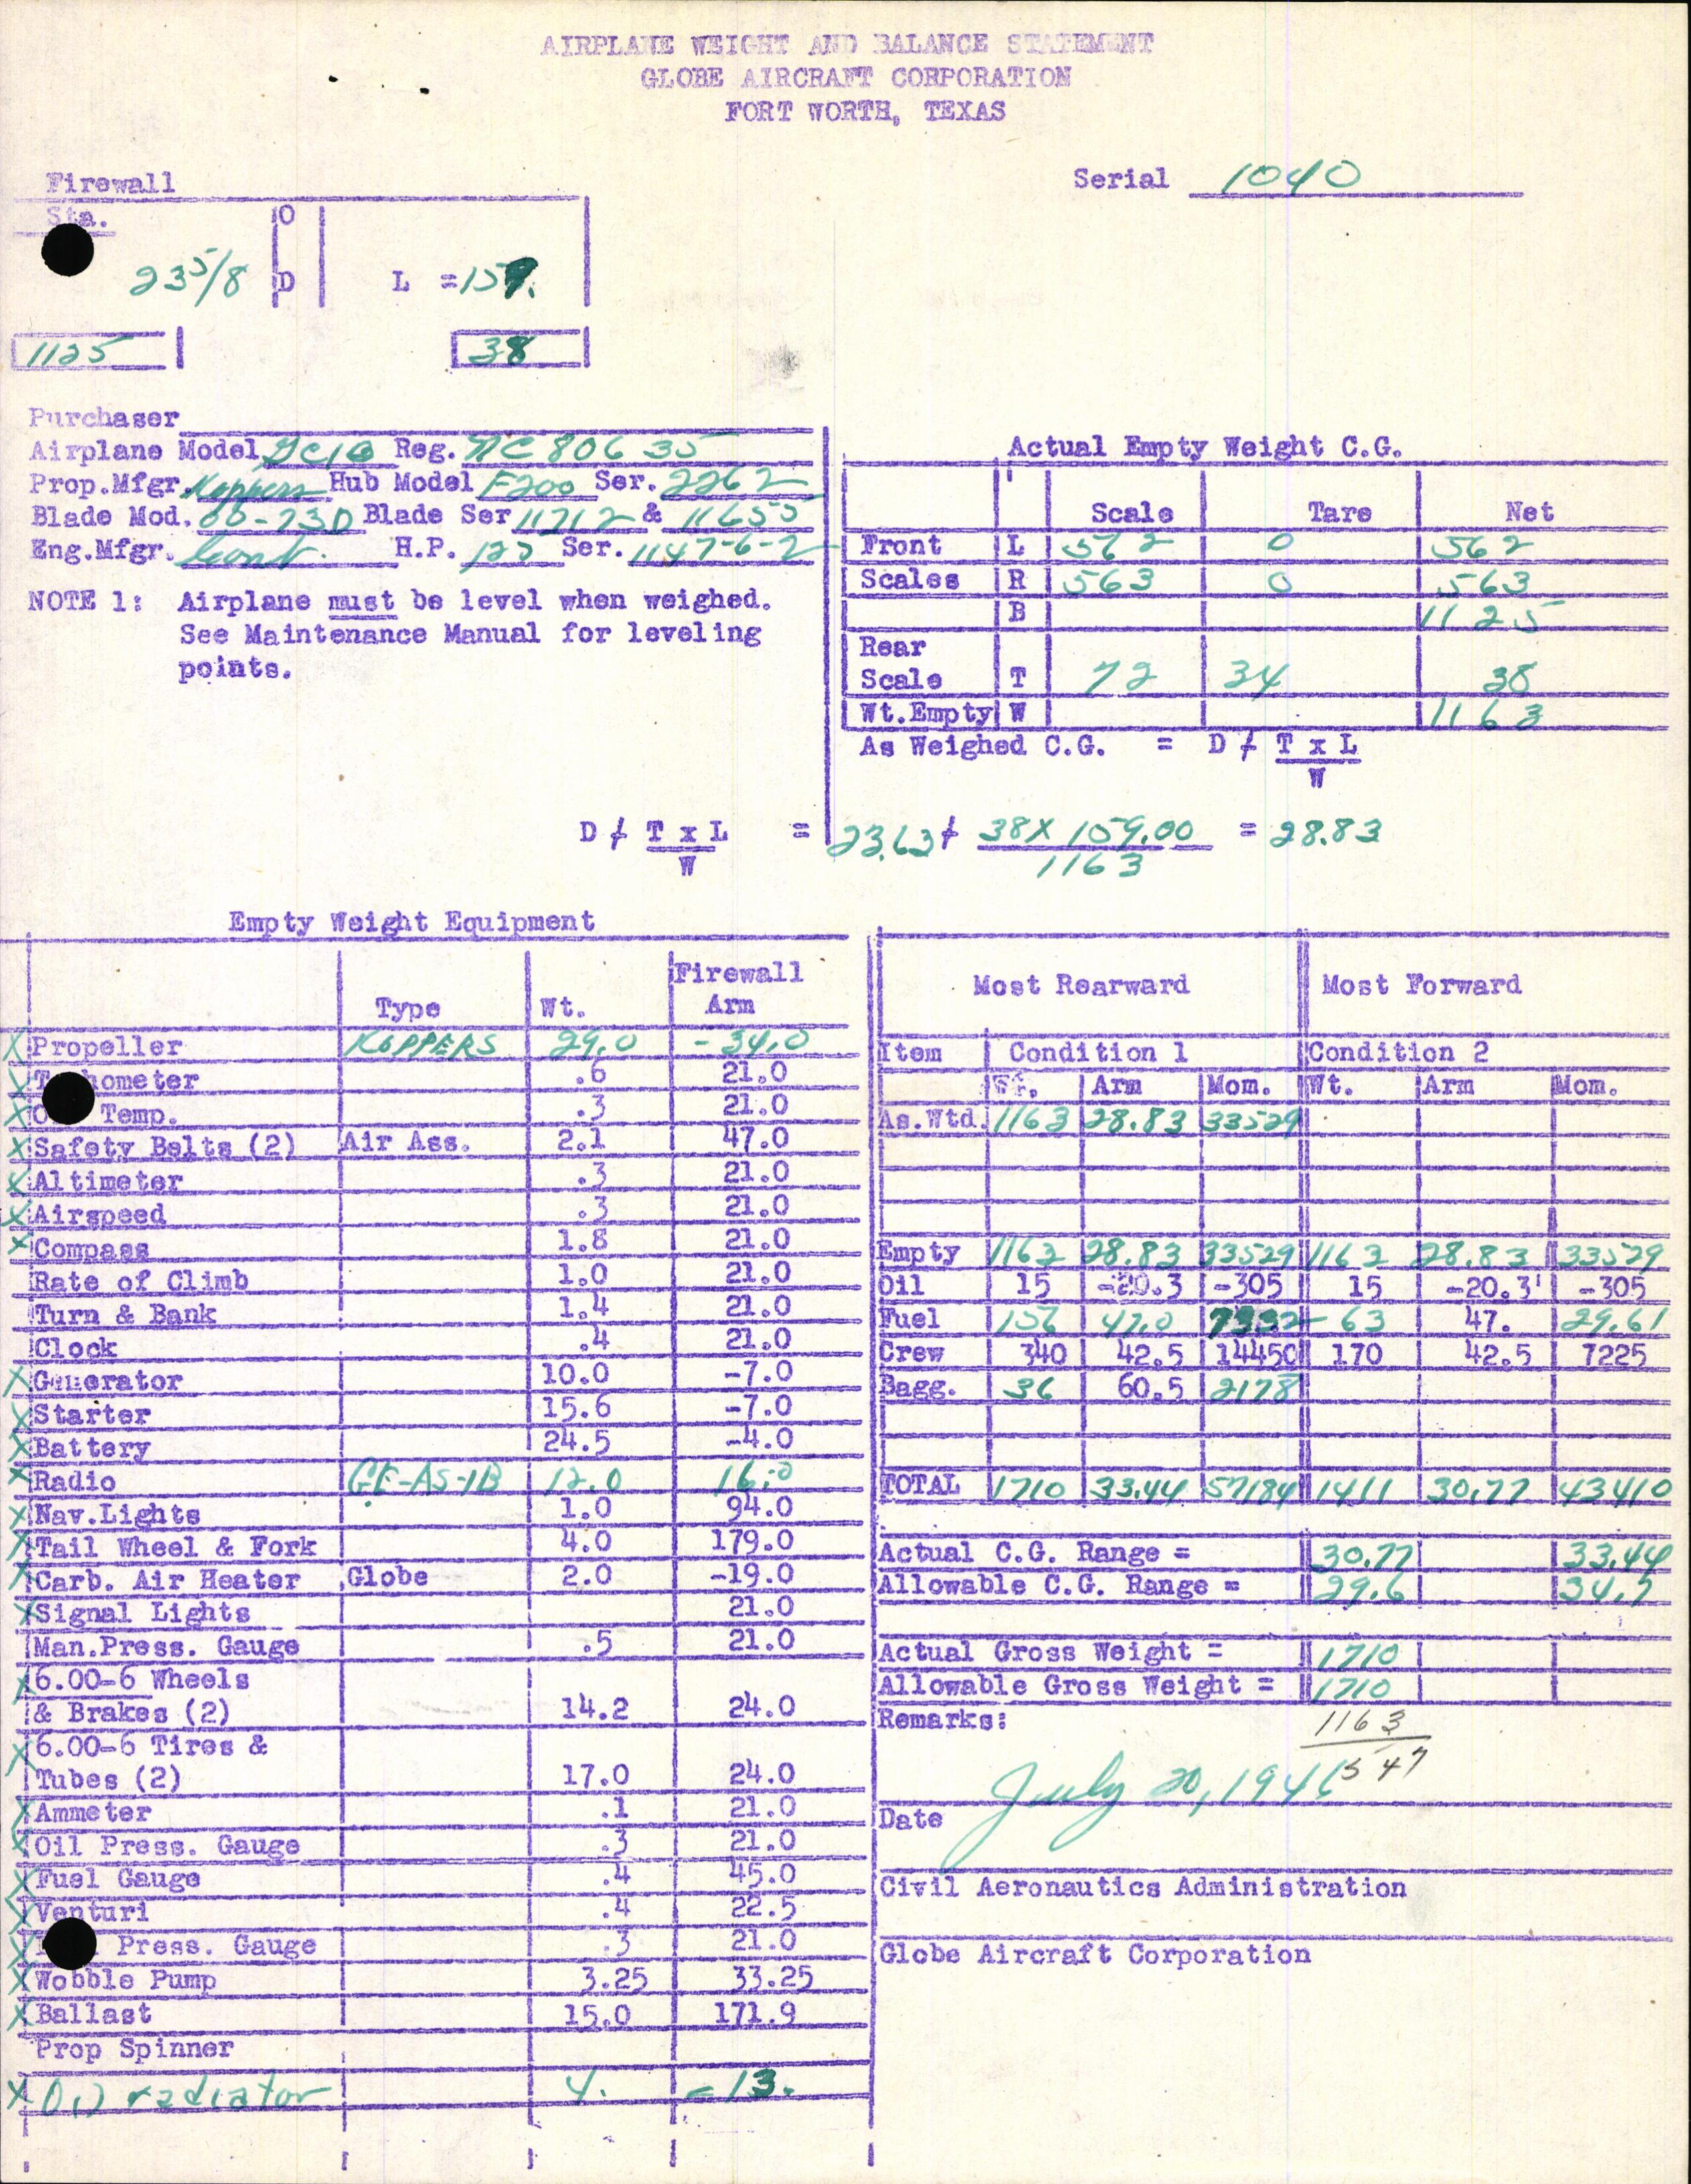 AIRPLANE WEIGHT AND BALANCE STATEMENT
GLOBE AIRCRAFT CORPORATION
FORT WORTH, TEXAS
Serial 1040
Firewall
Sta.
O
23 5/8 D L = 159.
1125 38
Purchaser
Airplane Model GC1B Reg. NC 80635
Prop.Mfgr. Koppers Hub Model F200 Ser. 2262
Blade Mod. 00-73D Blade Ser 11712 & 11655
Eng.Mfgr. Cont. H.P. 125 Ser. 1147-6-2
NOTE 1: Airplane must be level when weighed.
See Maintenance Manual for leveling
points.
Actual Empty Weight C.G.
Scale Tare Net
Front L 562 0 562
Scales R 563 0 563
B 1125
Rear
Scale T 72 34 38
Wt.Empty W 1163
As Weighed C.G. = D + T x L
W
D + T x L = 23.63 + 38 X 159.00 = 28.83
W 1163
Empty Weight Equipment
Type Wt. Firewall Arm
X Propeller KOPPERS 29.0 -34.0
X Tachometer .6 21.0
X Temp. .3 21.0
X Safety Belts (2) Air Ass. 2.1 47.0
X Altimeter .3 21.0
X Airspeed .3 21.0
X Compass 1.8 21.0
Rate of Climb 1.0 21.0
Turn & Bank 1.4 21.0
Clock .4 21.0
X Generator 10.0 -7.0
X Starter 15.6 -7.0
X Battery 24.5 -4.0
X Radio GE-AS-1B 12.0 16.0
X Nav.Lights 1.0 94.0
X Tail Wheel & Fork 4.0 179.0
X Carb. Air Heater Globe 2.0 -19.0
X Signal Lights 21.0
Man.Press. Gauge .5 21.0
X 6.00-6 Wheels
& Brakes (2) 14.2 24.0
X 6.00-6 Tires &
Tubes (2) 17.0 24.0
X Ammeter .1 21.0
X Oil Press. Gauge .3 21.0
X Fuel Gauge .4 45.0
X Venturi .4 22.5
X Press. Gauge .3 21.0
X Wobble Pump 3.25 33.25
X Ballast 15.0 171.9
Prop Spinner
X Oil radiator 4. -13.
Most Rearward Most Forward
Item Condition 1 Condition 2
Wt. Arm Mom. Wt. Arm Mom.
As.Wtd. 1163 28.83 33529
Empty 1163 28.83 33529 1163 28.83 33529
Oil 15 -20.3 -305 15 -20.3 -305
Fuel 156 47.0 7332 63 47. 29.61
Crew 340 42.5 14450 170 42.5 7225
Bagg. 36 60.5 2178
TOTAL 1710 33.44 57184 1411 30.77 43410
Actual C.G. Range = 30.77 33.44
Allowable C.G. Range = 29.6 34.7
Actual Gross Weight = 1710
Allowable Gross Weight = 1710
Remarks: 1163
547
July 20, 1946
Date
Civil Aeronautics Administration
Globe Aircraft Corporation